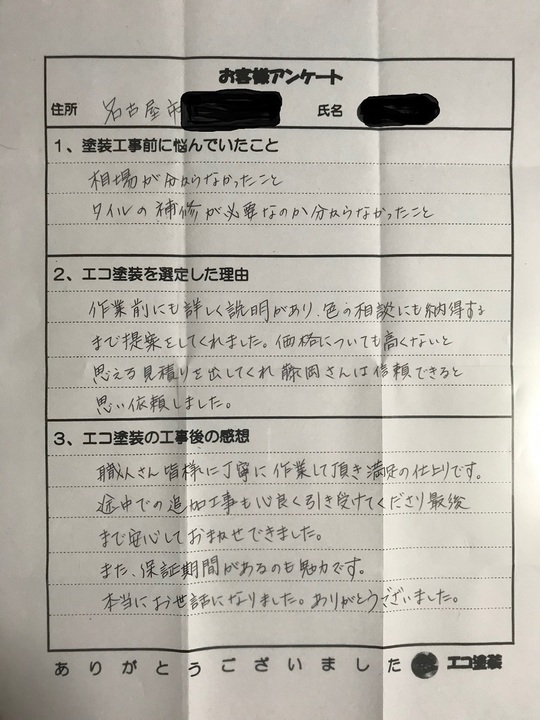 お客様アンケート
住所 名古屋市 氏名
1、塗装工事前に悩んでいたこと
相場が分からなかったこと
タイルの補修が必要なのか分からなかったこと
2、エコ塗装を選定した理由
作業前にも詳しく説明があり、色の相談にも納得する
まで提案をしてくれました。価格についても高くないと
思える見積りを出してくれ藤岡さんは信頼できると
思い依頼しました。
3、エコ塗装の工事後の感想
職人さん皆様に丁寧に作業して頂き満足の仕上りです。
途中での追加工事も心良く引き受けてくださり最後
まで安心しておまかせできました。
また、保証期間があるのも魅力です。
本当にお世話になりました。ありがとうございました。
ありがとうございました エコ塗装